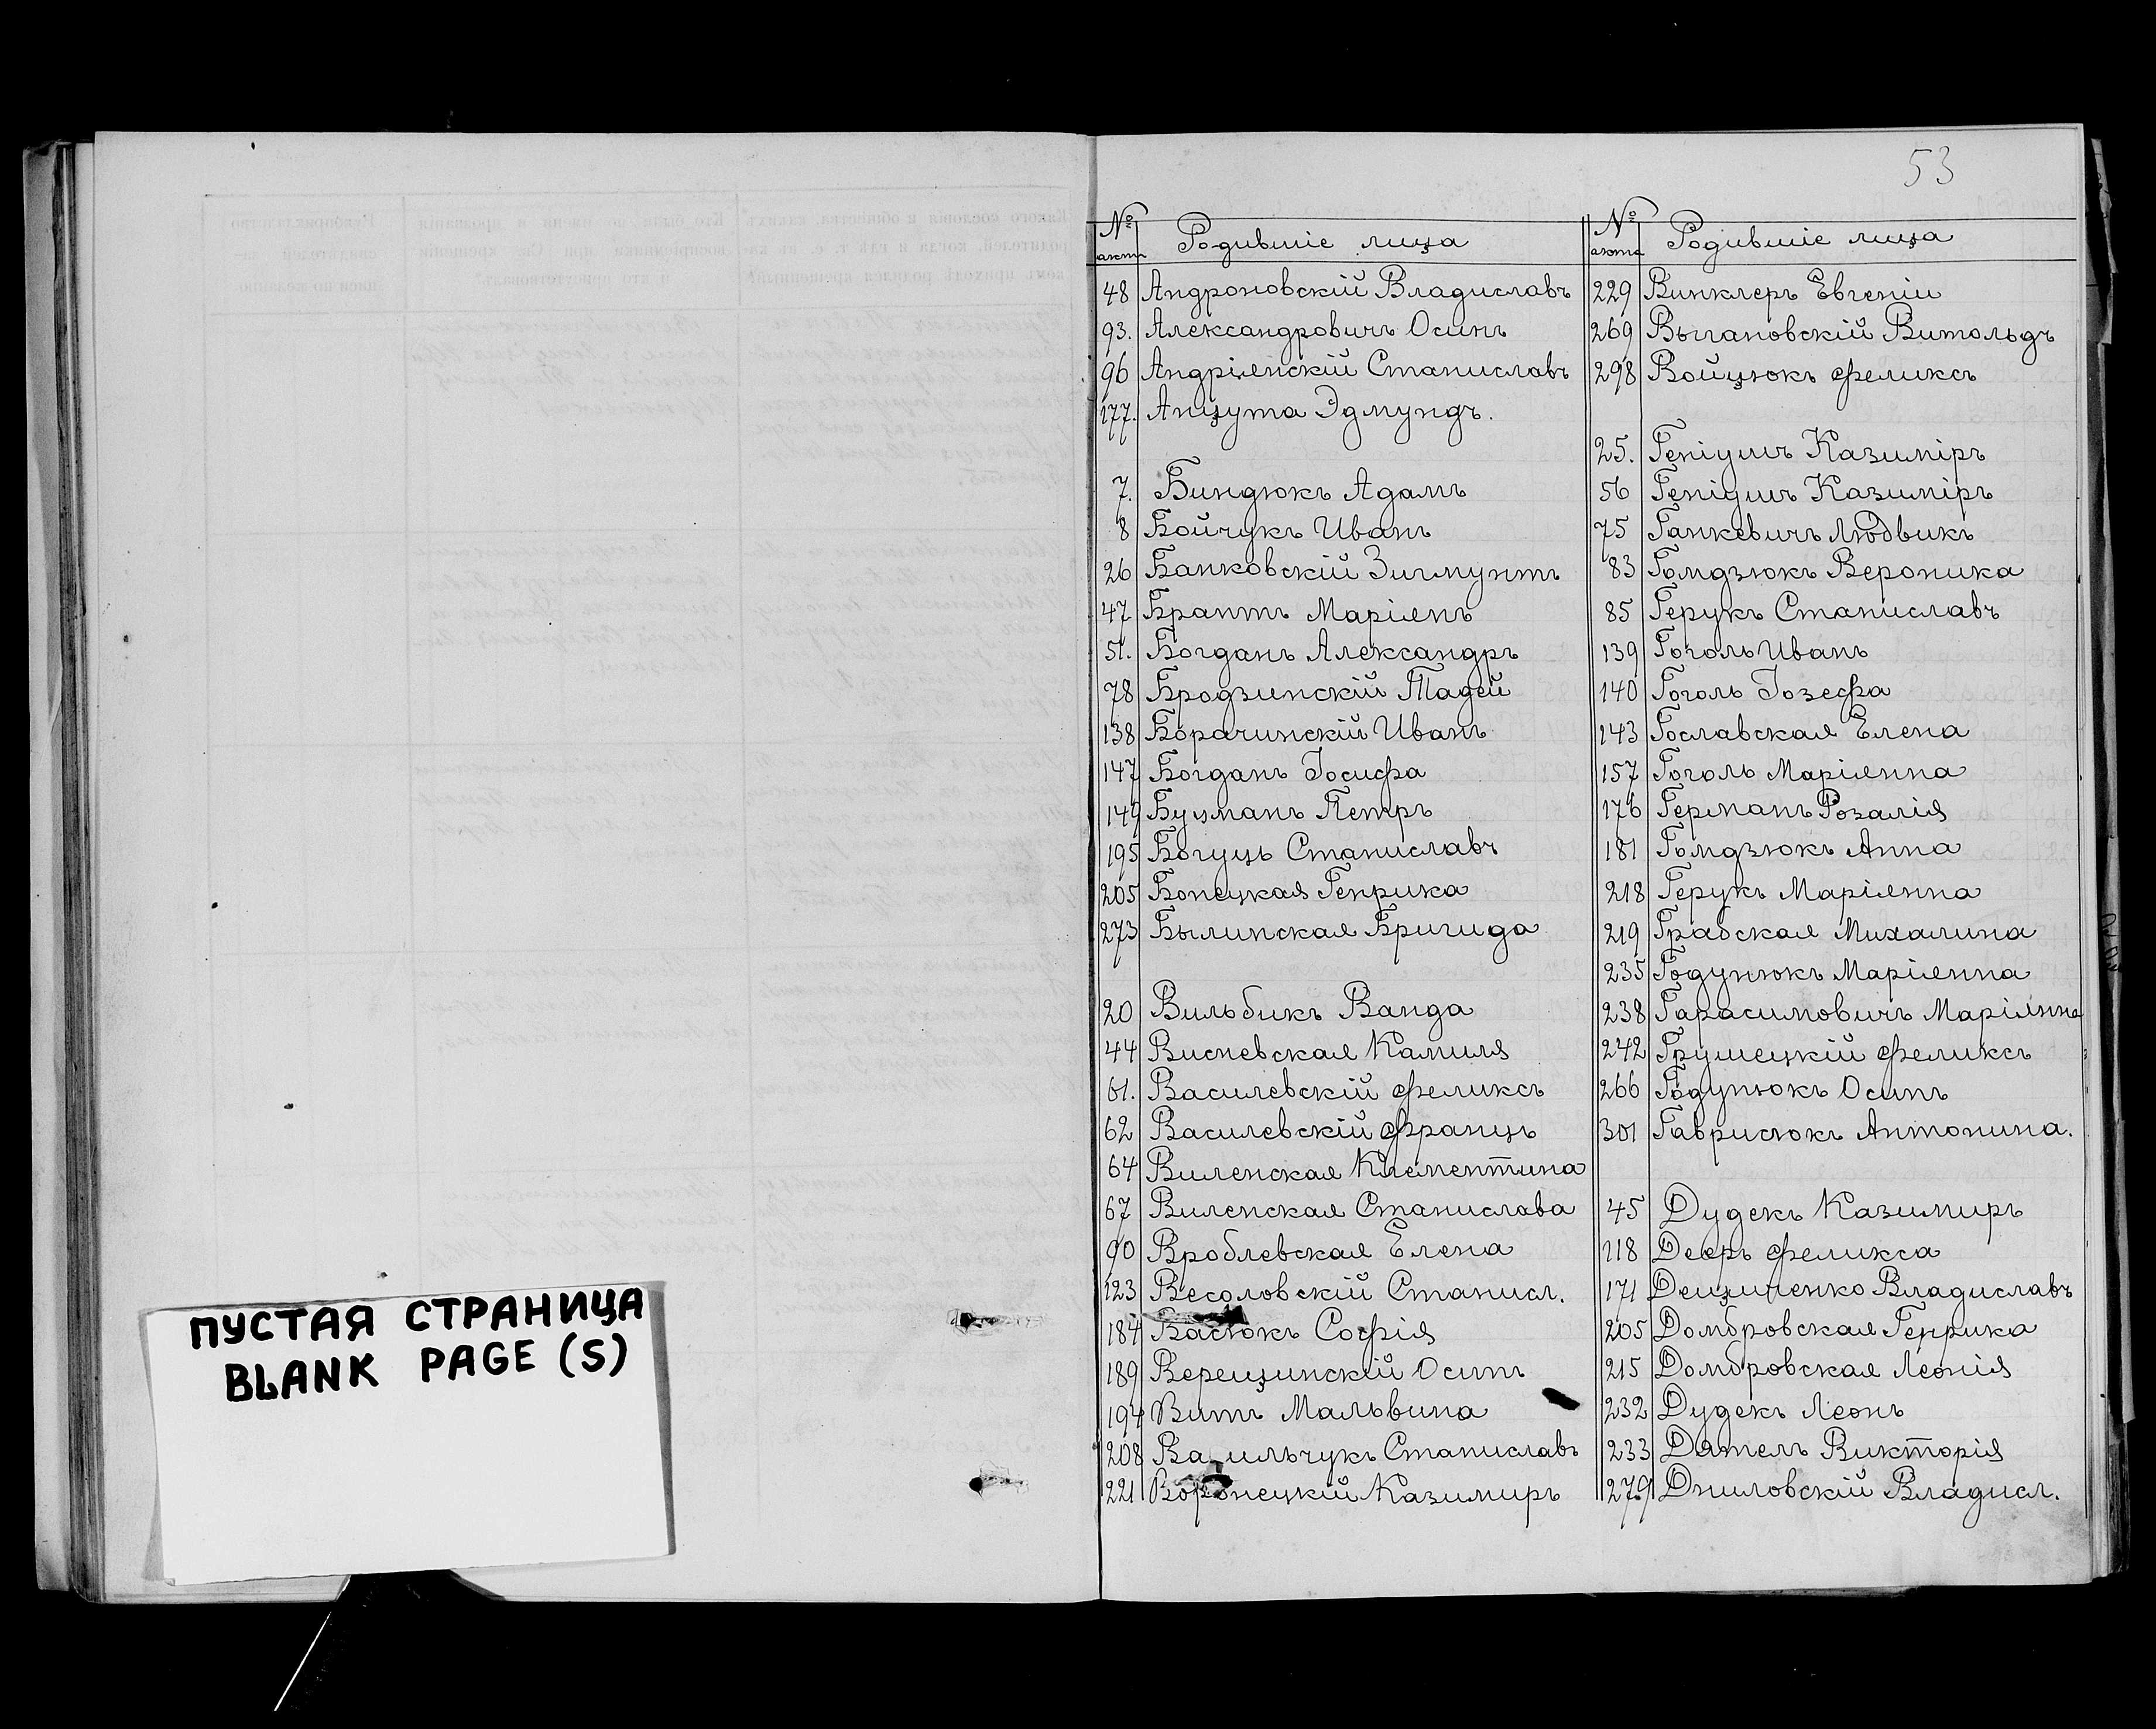 53
№ акта Родившіе лица
48 Андроновскій Владиславъ
93. Александровичъ Осипъ
96 Андріенскій Станиславъ
177. Анцута Эдмундъ.
7. Биндюкъ Адамъ
8 Бойчукъ Иванъ
26 Банковскій Зигмунтъ
47 Брантъ Маріянъ
51. Богданъ Александръ
78 Бродзинскій Тадей
138 Борачинскій Иванъ
147 Богданъ Іосифа
149 Бузманъ Петръ
195 Богуцъ Станиславъ
205 Бонецкая Генрика
273 Былинская Бригида
20 Вильбикъ Ванда
44 Висневская Камиля
61. Василевскій Феликсъ
62 Василевскій Францъ
64 Виленская Клементина
67 Виленская Станислава
90 Вроблевская Елена
123 Весоловскій Станисл.
184 Васюкъ Софія
189 Верещинскій Осипъ
194 Витъ Мальвина
208 Васильчукъ Станиславъ
221 Воронецкій Казимиръ
№ акта Родившіе лица
229 Винклеръ Евгеніи
269 Выгановскій Витольдъ
298 Войцюкъ Феликсъ
25. Геніушъ Казиміръ
56 Геніушъ Казиміръ
75 Ганкевичъ Людвикъ
83 Гомдзюкъ Вероника
85 Герукъ Станиславъ
139 Гоголь Иванъ
140 Гоголь Іозефа
143 Гославская Елена
157 Гоголь Маріянна
176 Германъ Розалія
181 Гомдзюкъ Анна
218 Герукъ Маріянна
219 Грабская Михалина
235 Годунюкъ Маріянна
238 Гарасимовичъ Маріянна
242 Грушецкій Феликсъ
266 Годунюкъ Осипъ
301 Гаврисюкъ Антонина.
45 Дудекъ Казимиръ
118 Дееръ Феликса
171 Дещиченко Владиславъ
205 Домбровская Генрика
215 Домбровская Леонія
232 Дудекъ Леонъ
233 Дятелъ Викторія
279 Дниловскій Владисл.
ПУСТАЯ СТРАНИЦА
BLANK PAGE (S)